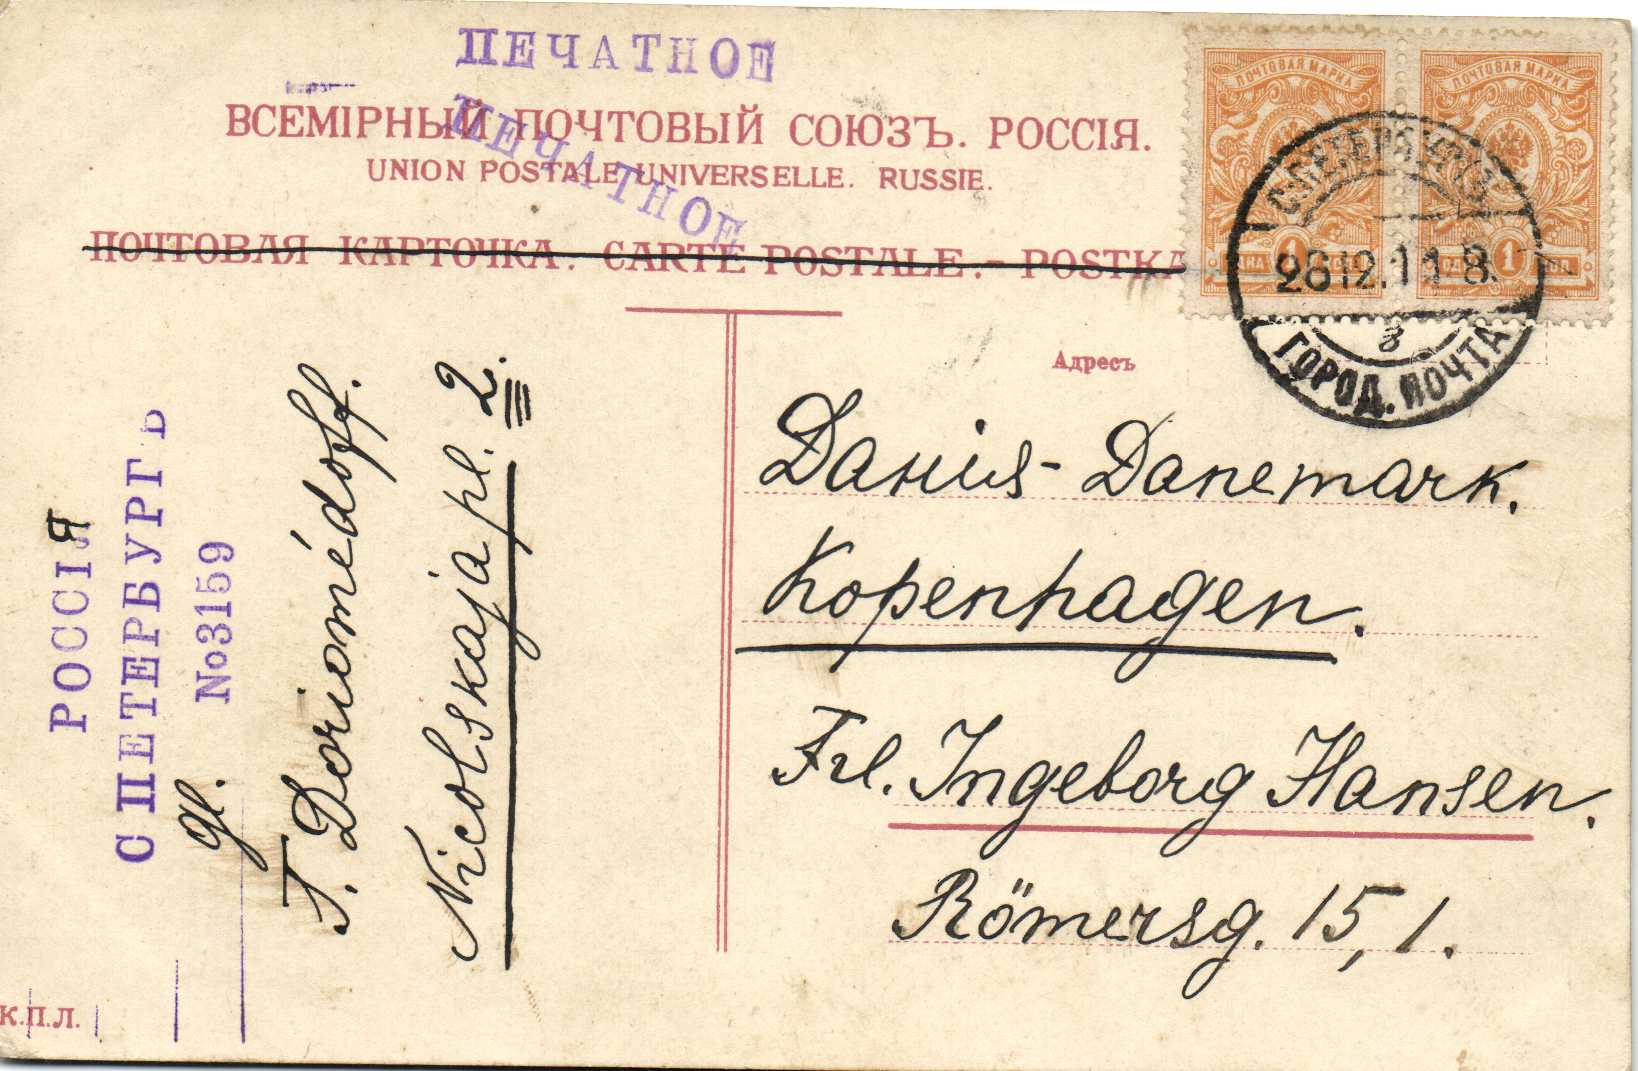 ПЕЧАТНОЕ
ПЕЧАТНОЕ
ВСЕМІРНЫЙ ПОЧТОВЫЙ СОЮЗЪ. РОССІЯ.
UNION POSTALE UNIVERSELLE. RUSSIE.
ПОЧТОВАЯ КАРТОЧКА. CARTE POSTALE.- POSTKA
ПОЧТОВАЯ МАРКА
ПОЧТОВАЯ МАРКА
1
1
С.ПЕТЕРБУРГЪ
28 12.11 8.
3
ГОРОД. ПОЧТА
Адресъ
Данія- Danemark.
Kopenhagen.
Frl. Ingeborg Hansen.
Römersg. 15, 1.
РОССІЯ
С ПЕТЕРБУРГЪ
No 3159
T. Doriomédoff.
Nicolskaja pl. 2.
К.П.Л.